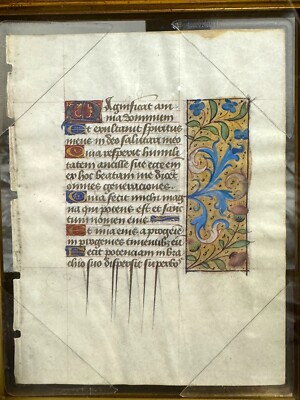 Magnificat ani
ma dominum
Et exultauit spiritus
meus in deo salutari meo
Quia respexit humili
tatem ancille sue ecce em
ex hoc beatam me dicet
omnes generaciones
Quia fecit michi mag
na qui potens est et sanc
tum nomen eius
Et mia eius a progeie
in progenies timentib; eu
Fecit potenciam in bra
chio suo dispersit superbo